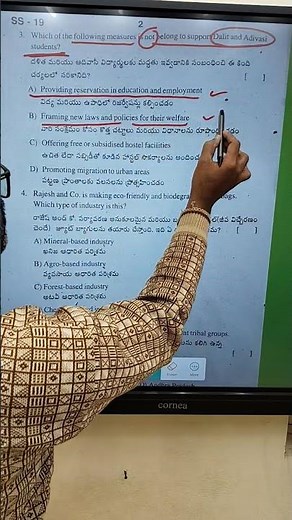 SS - 19
2
3. Which of the following measures is not belong to support Dalit and Adivasi
students?
దళిత మరియు ఆదివాసీ విద్యార్థులకు మద్దతు ఇవ్వడానికి సంబంధించి ఈ కింది
చర్యలలో సరికానిది? [ ]
A) Providing reservation in education and employment
విద్య మరియు ఉపాధిలో రిజర్వేషన్లు కల్పించడం
B) Framing new laws and policies for their welfare
వారి సంక్షేమం కోసం కొత్త చట్టాలు మరియు విధానాలను
C) Offering free or subsidised hostel facilities
ఉచిత లేదా సబ్సిడీతో కూడిన హాస్టల్ సౌకర్యాలను
D) Promoting migration to urban areas
పట్టణ ప్రాంతాలకు వలసలను ప్రోత్సహించడం
4. Rajesh and Co. is making eco-friendly and
Which type of industry is this? [ ]
రాజేష్ అండ్ కో. పర్యావరణ అనుకూలమైన మరియు
చెందే) జ్యూట్ బ్యాగులను తయారు చేస్తాంది. ఇది ఏ [ ]
A) Mineral-based industry
ఖనిజ ఆధారిత పరిశ్రమ
B) Agro-based industry
వ్యవసాయ ఆధారిత పరిశ్రమ
C) Forest-based industry
అటవీ ఆధారిత పరిశ్రమ
tribal groups.
[ ]
cornea